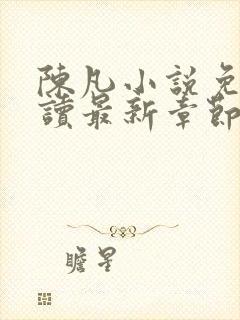 陳凡小說免
讀最新章節
瞻星